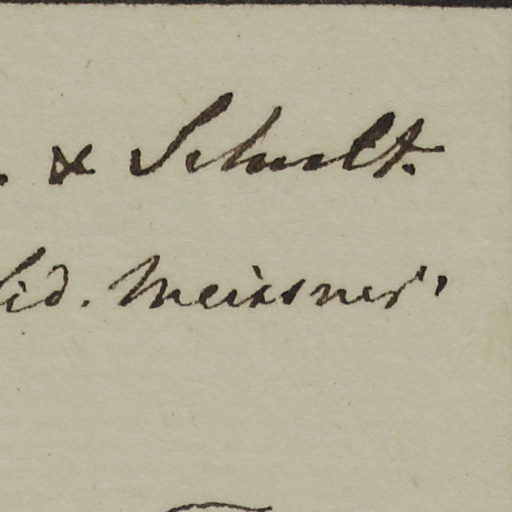 . & Schult.
id. Meissner,